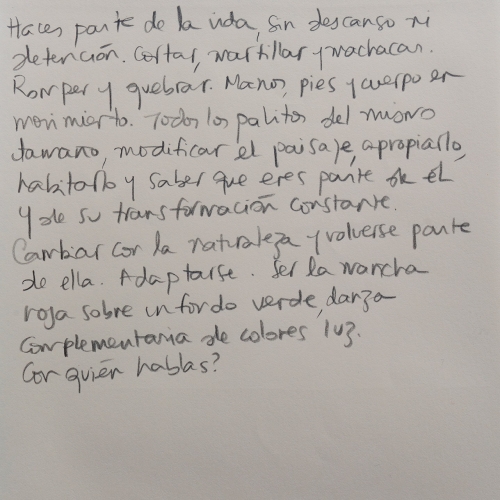 Haces parte de la vida, sin descanso ni
detención. Cortar, martillar y machacar.
Romper y quebrar. Manos, pies y cuerpo en
movimiento. Todos los palitos del mismo
tamaño, modificar el paisaje, apropiarlo,
habitarlo y saber que eres parte de él
y de su transformación constante.
Cambiar con la naturaleza y volverse parte
de ella. Adaptarse. Ser la mancha
roja sobre un fondo verde, danza
complementaria de colores luz.
Con quién hablas?